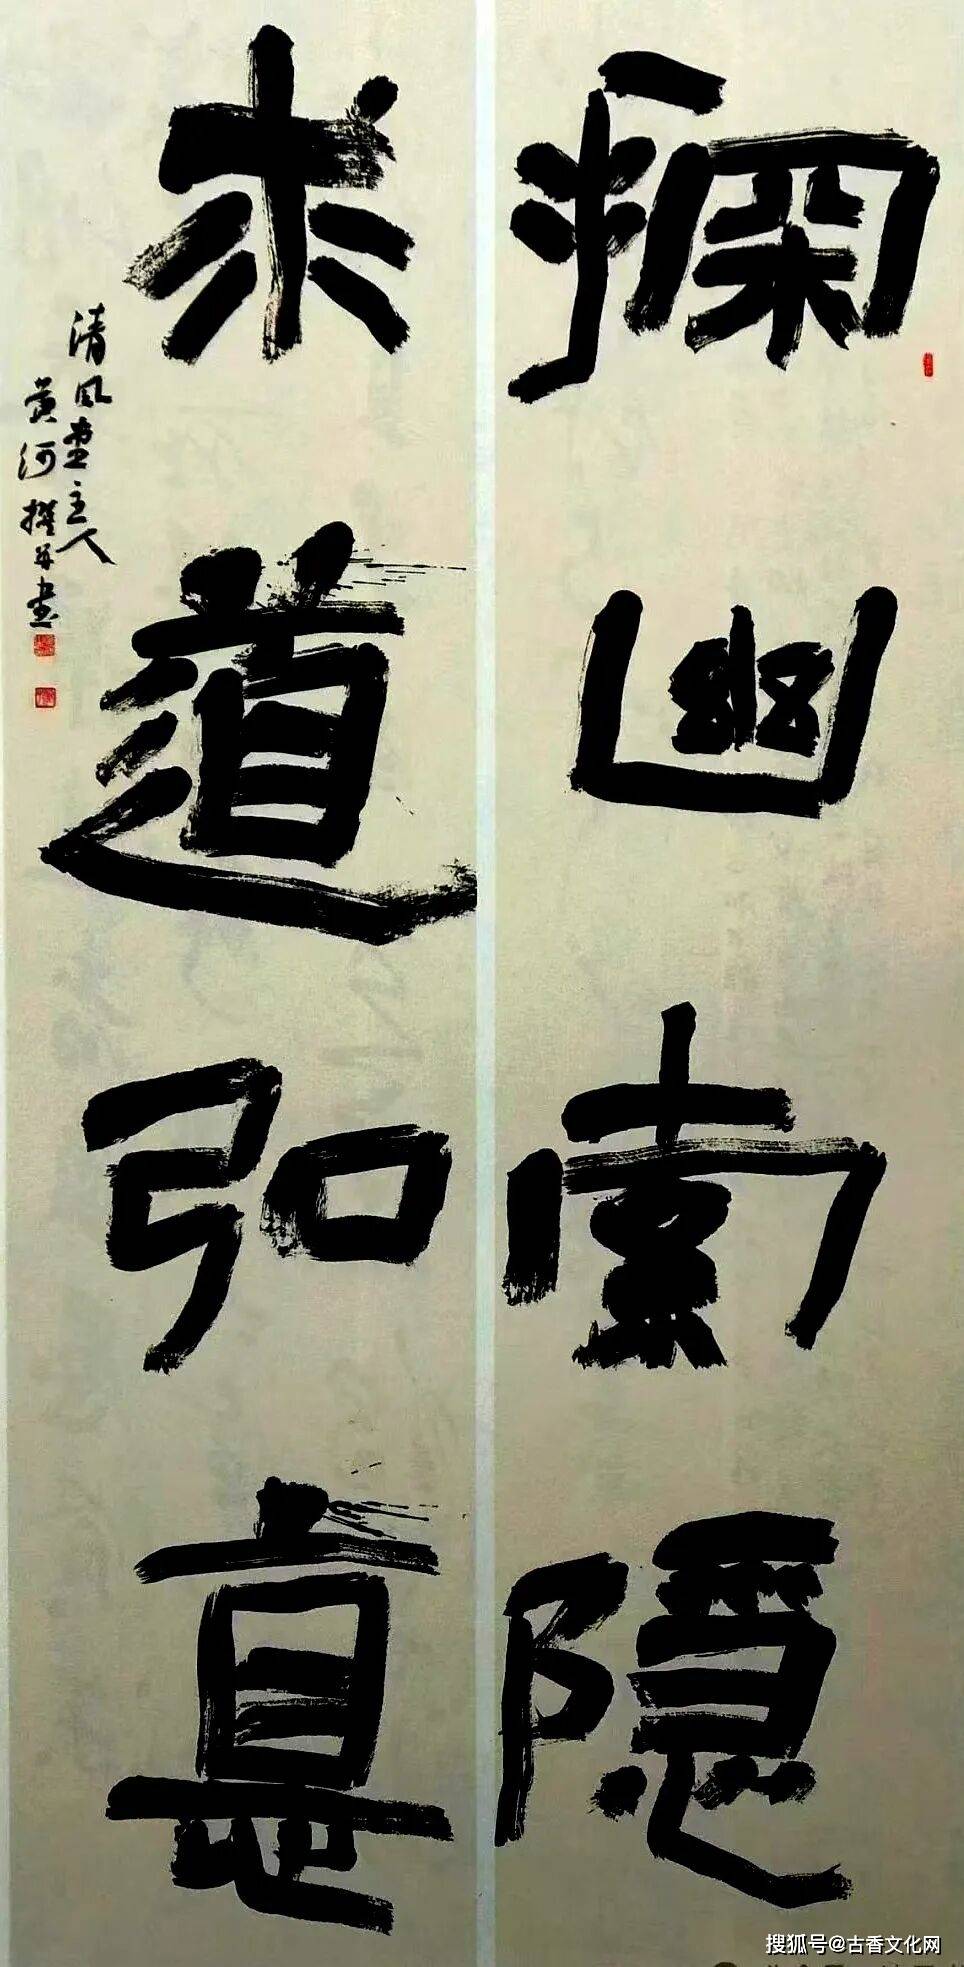 探幽索隱
求道弘悳
清風堂主人
黄河撰并书
搜狐号@古香文化网